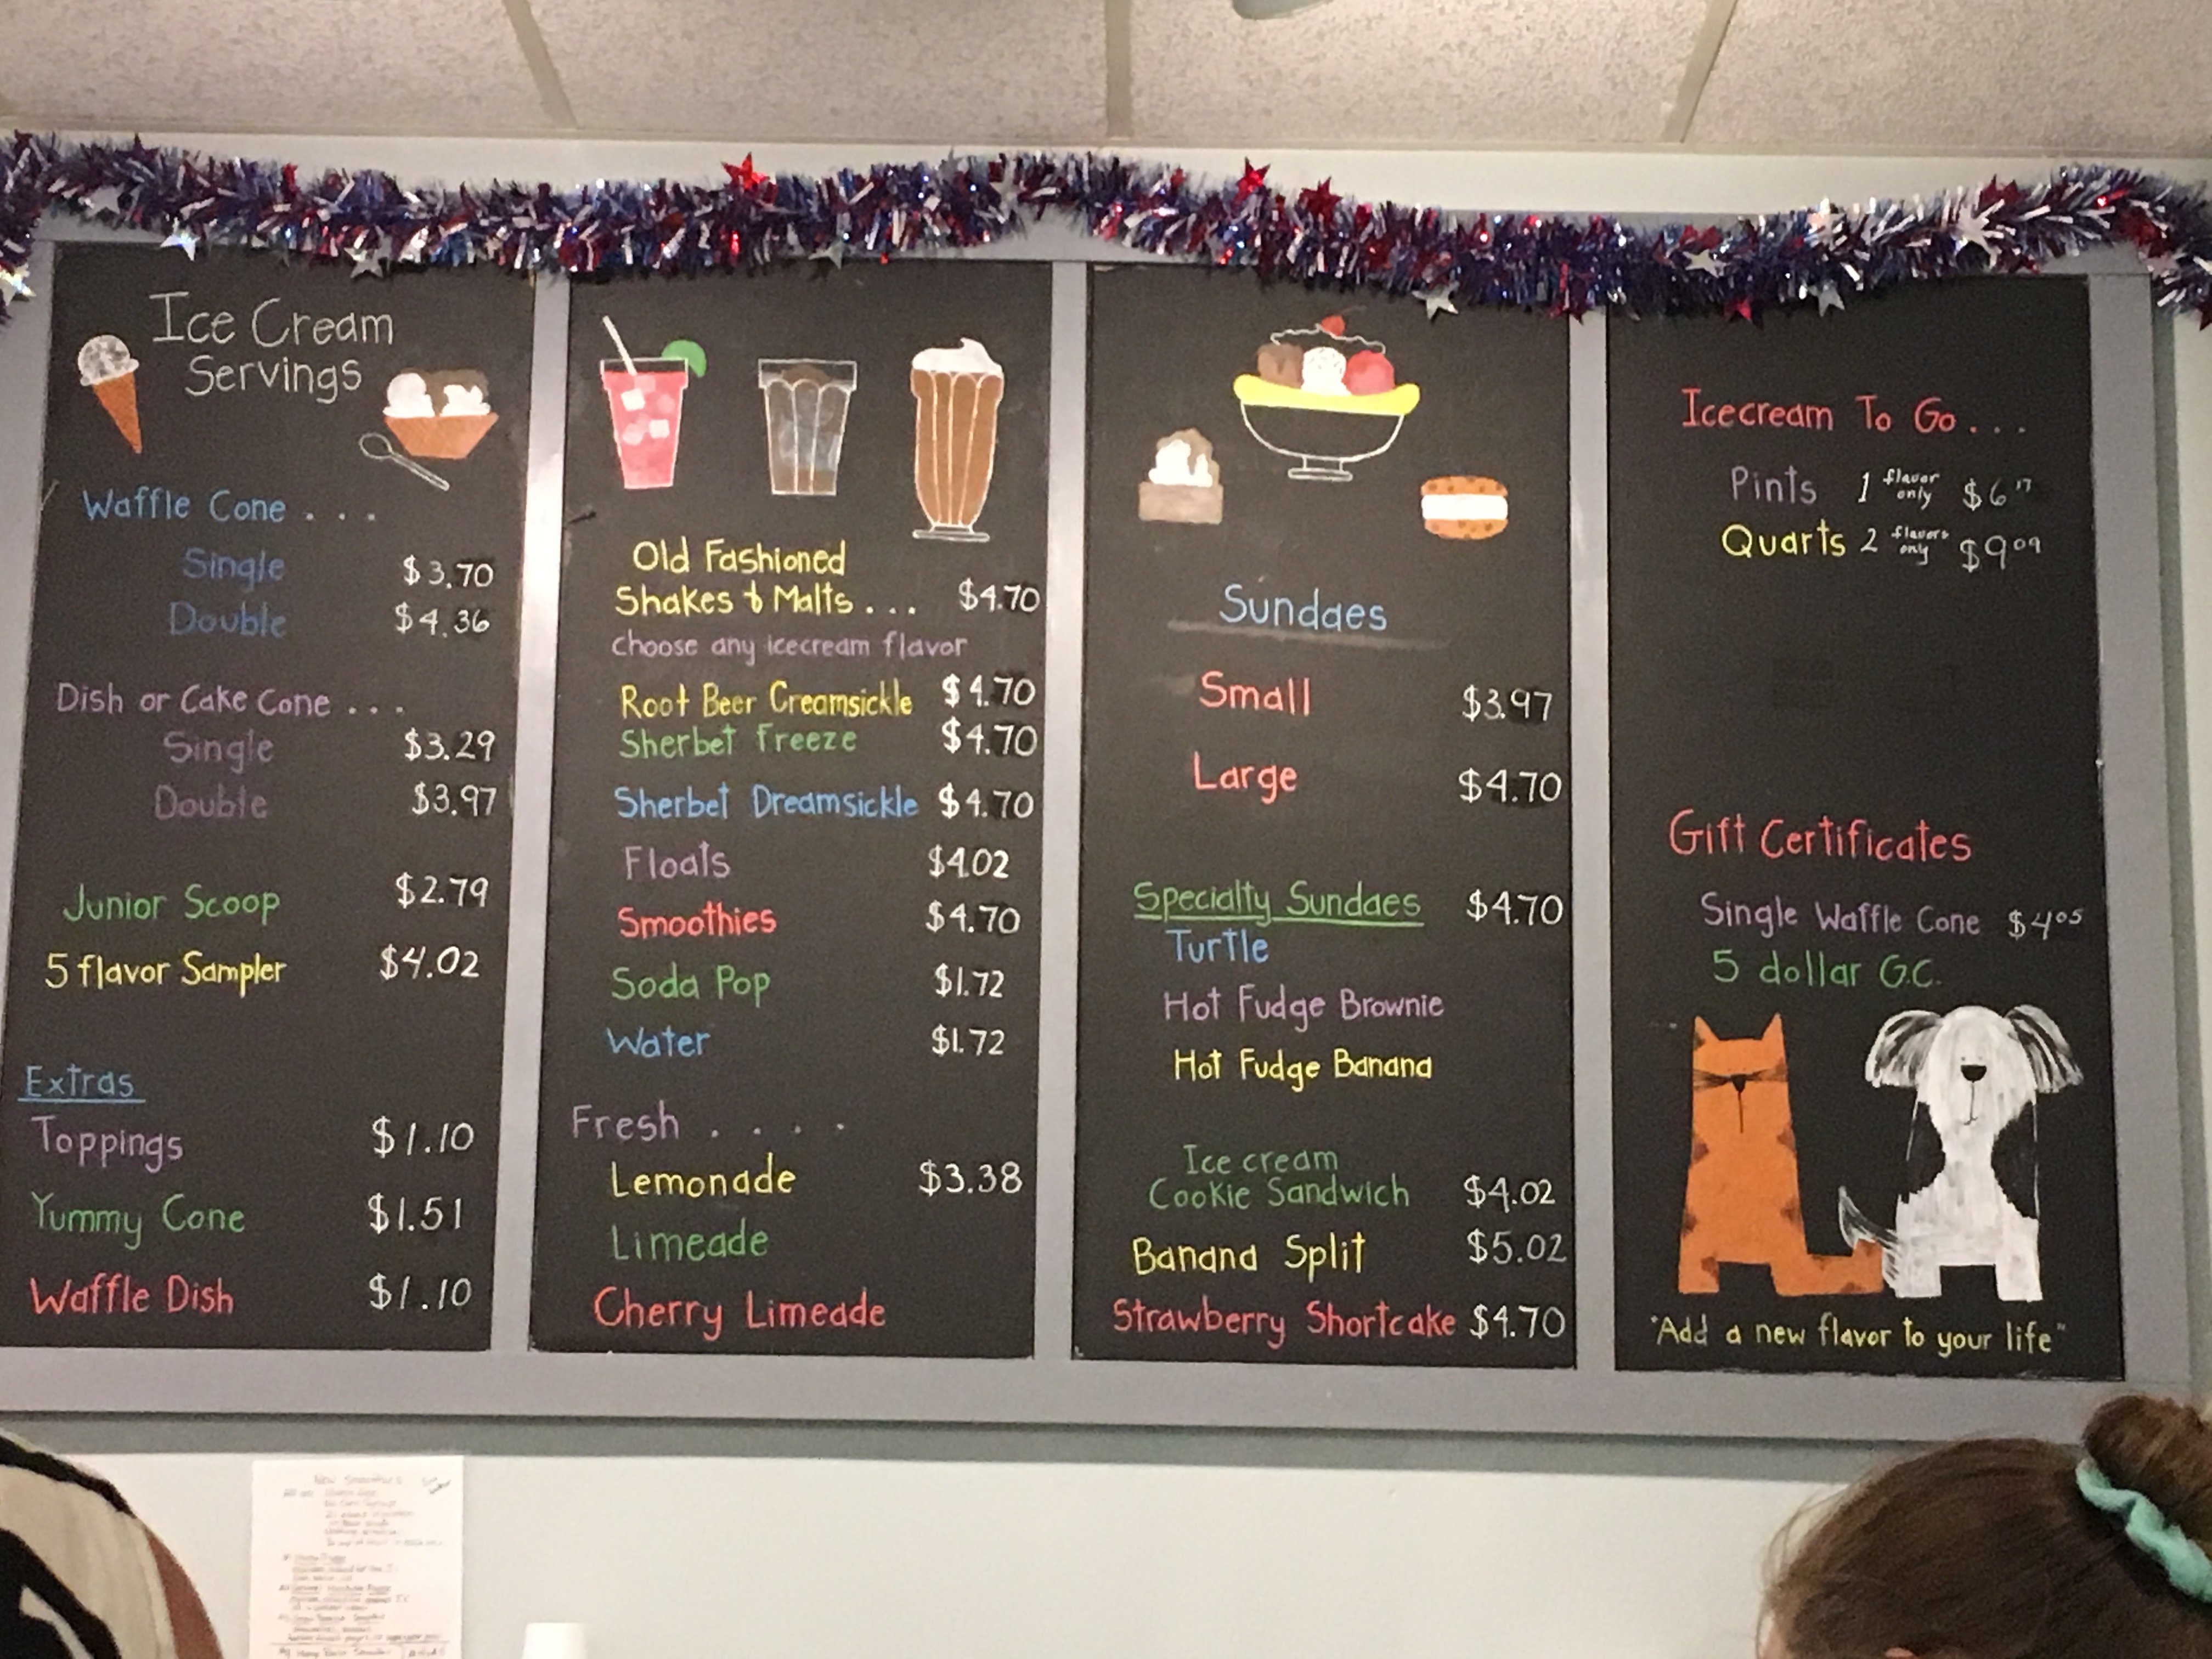 Ice Cream
Servings
Waffle Cone . . .
Single $3.70
Double $4.36
Dish or Cake Cone . . .
Single $3.29
Double $3.97
Junior Scoop $2.79
5 flavor Sampler $4.02
Extras
Toppings $1.10
Yummy Cone $1.51
Waffle Dish $1.10
Old Fashioned
Shakes & Malts . . . $4.70
choose any icecream flavor
Root Beer Creamsickle $4.70
Sherbet freeze $4.70
Sherbet Dreamsickle $4.70
Floats $4.02
Smoothies $4.70
Soda Pop $1.72
Water $1.72
Fresh . . . .
Lemonade $3.38
Limeade
Cherry Limeade
Sundaes
Small $3.97
Large $4.70
Specialty Sundaes $4.70
Turtle
Hot Fudge Brownie
Hot Fudge Banana
Ice cream
Cookie Sandwich $4.02
Banana Split $5.02
Strawberry Shortcake $4.70
Icecream To Go . . .
Pints 1 flavor only $6
Quarts 2 flavors only $9.09
Gift Certificates
Single Waffle Cone $4.05
5 dollar G.C.
"Add a new flavor to your life"